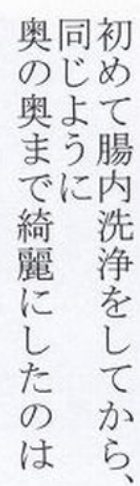 初めて腸内洗浄をしてから、
同じように
奥の奥まで綺麗にしたのは